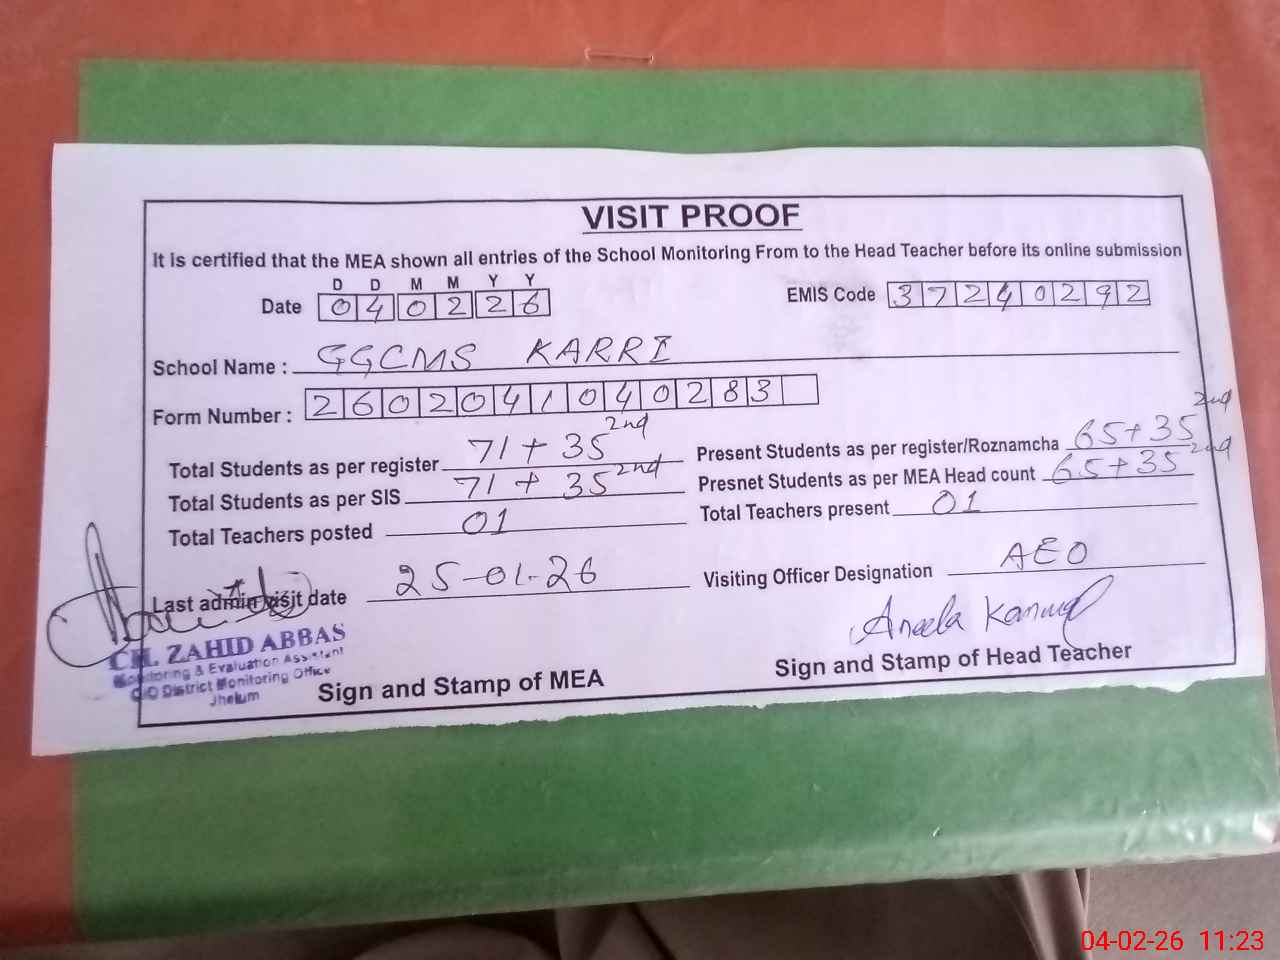 VISIT PROOF
It is certified that the MEA shown all entries of the School Monitoring From to the Head Teacher before its online submission
D D M M Y Y
Date 040226 EMIS Code 37240292
School Name : GGCMS KARRI
Form Number : 2602041040283
Total Students as per register 71 + 35 2nd
Present Students as per register/Roznamcha 65+35 2nd
Total Students as per SIS 71 + 35 2nd
Presnet Students as per MEA Head count 65+35 2nd
Total Teachers posted 01
Total Teachers present 01
Last admin visit date 25-01-26
Visiting Officer Designation AEO
CH. ZAHID ABBAS
Monitoring & Evaluation Assistant
O/O District Monitoring Office
Jhelum
Sign and Stamp of MEA
Aneela Kanwal
Sign and Stamp of Head Teacher
04-02-26 11:23